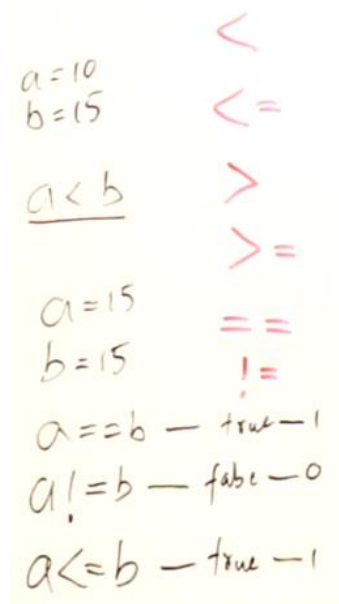 <
a=10
b=15
<=
a<b
>
>=
a=15
b=15
==
!=
a==b — true—1
a!=b — false—0
a<=b — true—1